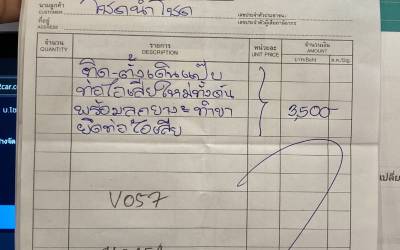 นามลูกค้า
CUSTOMER
ที่อยู่
ADDRESS
เลขประจำตัวประชาชน
เลขประจำตัวผู้เสียภาษีอากร
จำนวน รายการ หน่วยละ จำนวนเงิน
QUANTITY DESCRIPTION UNIT PRICE AMOUNT
ติด-ตั้งเดินแป๊บ
ท่อไอเสียใหม่ทั้งต้น
พร้อมลูกยาง ทำขา 3,500
ยึดท่อไอเสีย
V057